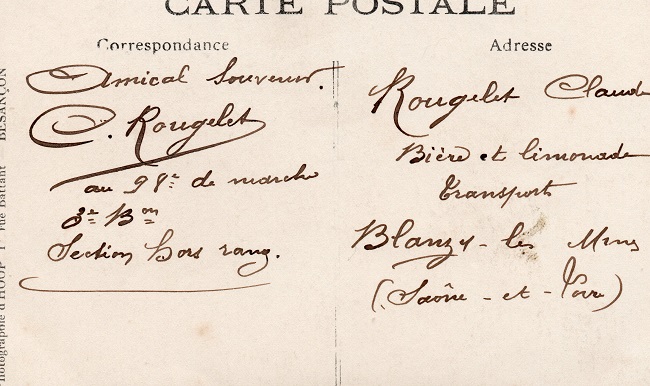 CARTE POSTALE
Correspondance
Amical Souvenir.
C. Rougelet
au 98e de marche
3e Bon
Section hors rang.
Adresse
Rougelet Claude
Bière et limonade
Transport
Blanzy-les Mines
(Saône-et-Loire)
Photographie d'HOOP 1 rue Battant BESANÇON